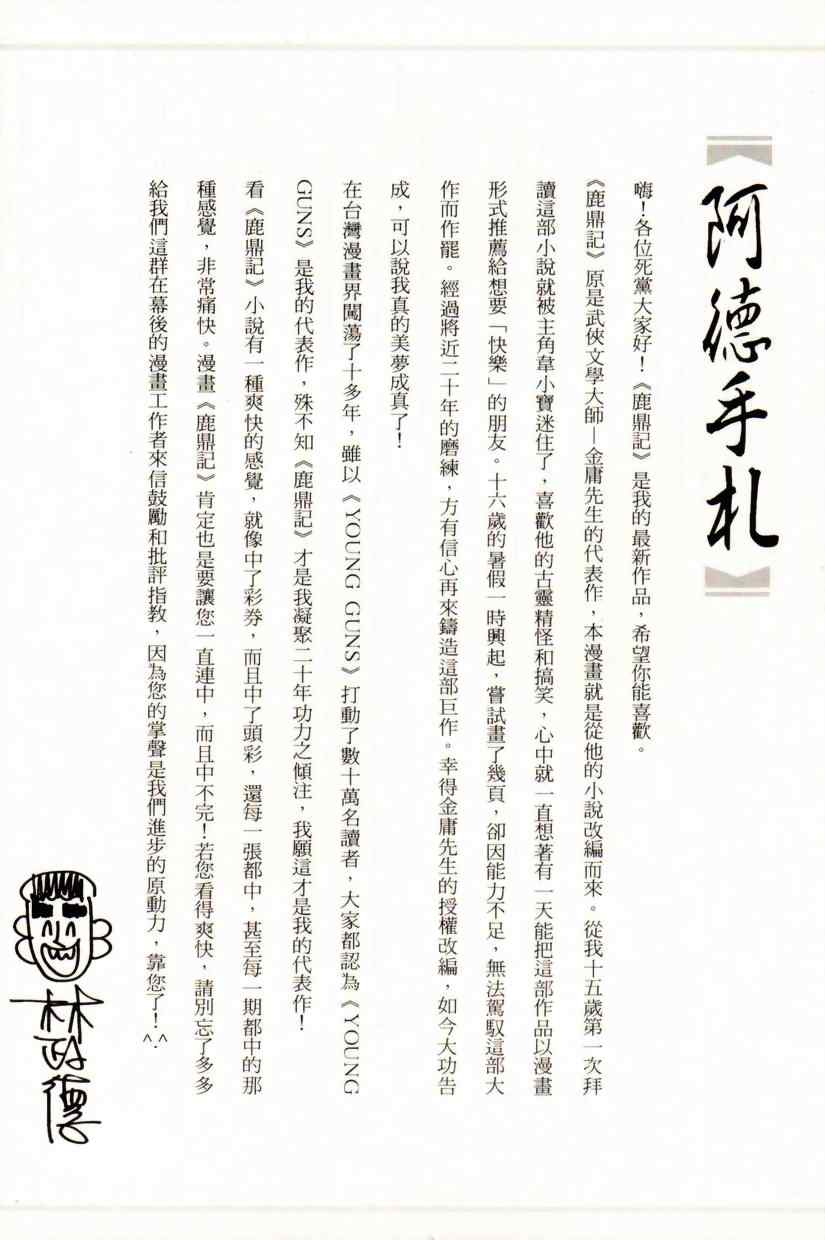 阿德手札
嗨！各位死黨大家好！《鹿鼎記》是我的最新作品，希望你能喜歡。
《鹿鼎記》原是武俠文學大師—金庸先生的代表作，本漫畫就是從他的小說改編而來。從我十五歲第一次拜
讀這部小說就被主角韋小寶迷住了，喜歡他的古靈精怪和搞笑，心中就一直想著有一天能把這部作品以漫畫
形式推薦給想要「快樂」的朋友。十六歲的暑假一時興起，嘗試畫了幾頁，卻因能力不足，無法駕馭這部大
作而作罷。經過將近二十年的磨練，方有信心再來鑄造這部巨作。幸得金庸先生的授權改編，如今大功告
成，可以說我真的美夢成真了！
在台灣漫畫界闖蕩了十多年，雖以《YOUNG GUNS》打動了數十萬名讀者，大家都認為《YOUNG
GUNS》是我的代表作，殊不知《鹿鼎記》才是我凝聚二十年功力之傾注，我願這才是我的代表作！
看《鹿鼎記》小說有一種爽快的感覺，就像中了彩券，而且中了頭彩，還每一張都中，甚至每一期都中的那
種感覺，非常痛快。漫畫《鹿鼎記》肯定也是要讓您一直連中，而且中不完！若您看得爽快，請別忘了多多
給我們這群在幕後的漫畫工作者來信鼓勵和批評指教，因為您的掌聲是我們進步的原動力，靠您了！^.^
林政德